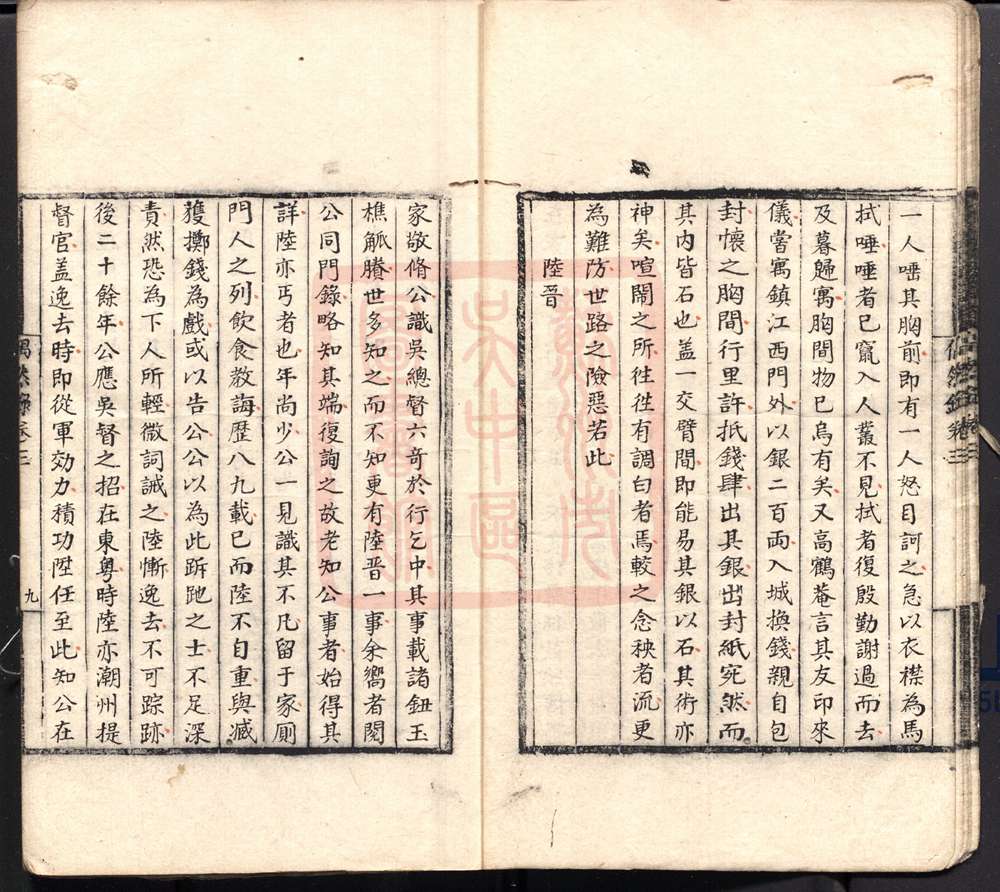 一人唾其胸前即有一人怒目訶之急以衣襟為馬
拭唾唾者已竄入人叢不見拭者復殷勤謝過而去
及暮歸寓胸間物已烏有矣又高鶴菴言其友印來
儀嘗寓鎮江西門外以銀二百両入城換錢親自包
封懷之胸間行里許抵錢肆出其銀出封紙宛然而
其内皆石也盖一交臂間即能易其銀以石其術亦
神矣喧鬧之所徃徃有調白者焉較之念秧者流更
為難防世路之險惡若此
陸晉
家敬脩公識吳總督六竒於行乞中其事載諸鈕玉
樵觚賸世多知之而不知更有陸晋一事余嚮者閱
公同門錄略知其端復詢之故老知公事者始得其
詳陸亦丐者也年尚少公一見識其不凡留于家厠
門人之列飲食教誨歷八九載已而陸不自重與臧
獲擲錢為戲或以告公公以為此跅跎之士不足深
責然恐為下人所輕微詞誡之陸慚逸去不可踪跡
後二十餘年公應吳督之招在東粤時陸亦潮州提
督官盖逸去時即從軍効力積功陞任至此知公在
偶然錄卷三
九